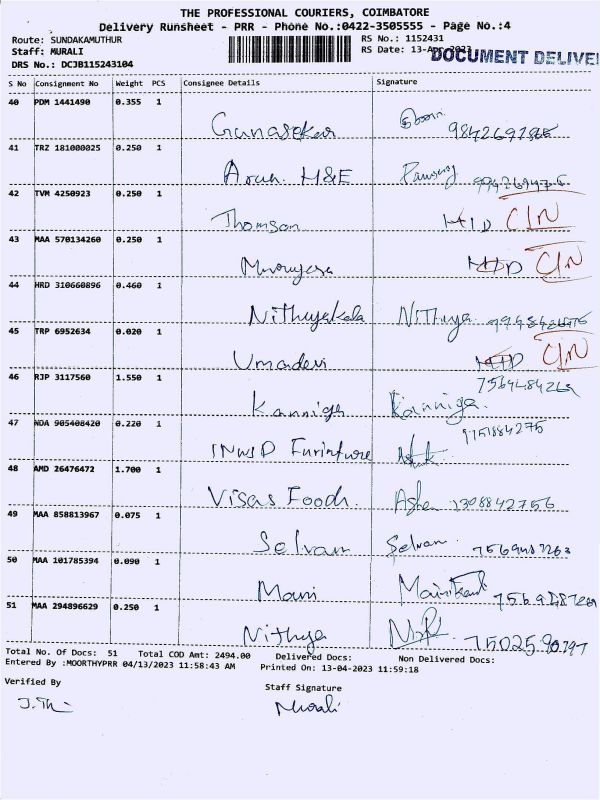 THE PROFESSIONAL COURIERS, COIMBATORE
Delivery Runsheet - PRR - Phone No.:0422-3505555 - Page No.:4
Route: SUNDAKAMUTHUR RS No.: 1152431
Staff: MURALI RS Date: 13-Apr-2023 DOCUMENT DELIVE
DRS No.: DCJB115243104
S No Consignment No Weight PCS Consignee Details Signature
40 PDM 1441490 0.355 1
Gunasekar
41 TRZ 181000025 0.250 1
Arun H&E
42 TVM 4250923 0.250 1
Thomson HID CIN
43 MAA 570134260 0.250 1
CIN
44 HRD 310660896 0.460 1
Nithyakala Nithya
45 TRP 6952634 0.020 1
Umadevi CIN
46 RJP 3117560 1.550 1 7569484269
Kanniga Kanniga.
47 NDA 905408420 0.220 1 9751884275
48 AMD 26476472 1.700 1
Visas Foods 1308842756
49 MAA 858813967 0.075 1
Selvam Selvam
50 MAA 101785394 0.090 1
Mani
51 MAA 294896629 0.250 1
Nithya
Total No. Of Docs: 51 Total COD Amt: 2494.00 Delivered Docs: Non Delivered Docs:
Entered By :MOORTHYPRR 04/13/2023 11:58:43 AM Printed On: 13-04-2023 11:59:18
Verified By Staff Signature
Murali